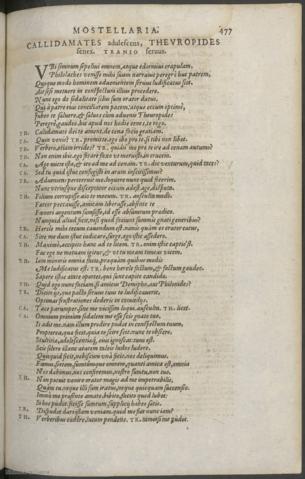 MOSTELLARIA. 477
CALLIDAMATES adulescens, THEVROPIDES
senex. TRANIO seruus.
VBi somnum sepeliui omnem, atque edormiui crapulam,
Philolaches venisse mihi suum narrauit peregre huc patrem,
Quoque modo hominem aduenientem seruus ludificatus sit.
Ait se metuere in conspectum illius procedere.
Nunc ego de sodalitate solus sum orator datus,
Qui à patre eius conciliarem pacem, atque eccum optimè,
Iubeo te saluere, & saluus cùm aduenis Theuropides
Peregrè, gaudeo. hic apud nos hodie cenes, sic face.
TH. Callidamates dei te ament. de cena facio gratiam.
CA. Quin venis? TR. promitte. ego ibo pro te, si tibi non libet.
TH. Verbero, etiam irrides? TR. quian me pro te ire ad cenam autumo?
TH. Non enim ibis. ego ferare faxo vt meruisti, in crucem.
CA. Age mitte ista, & te ad me ad cenam. TR. dic venturum, quid taces?
CA. Sed tu quid istuc confugisti in aram inscitissimus?
TR. Adueniens perterruit me. loquere nunc quid fecerim.
Nunc vtrisque disceptator eccum adest, age, disputa.
TH. Filium corrupisse aio te meum. TR. ausculta modò.
Fateor peccauisse, amicam liberasse, absente te
Faenori argentum sumpsisse, id esse absumptum praedico.
Nunquid aliud fecit, nisi quod faciunt summis gnati generibus?
TH. Hercle mihi tecum cauendum est. nimis quàm es orator catus,
CA. Sine me dum istuc iudicare. surge, ego istic assedero.
TH. Maxumè, accipito hanc ad te litem. TR. enim istic captio'st.
Fac ego ne metuam igitur, & vt tu meam timeas vicem.
TH. Iam minoris omnia facio, praequàm quibus modis
Me ludificatus est. TR. bene hercle factum, & factum gaudeo.
Sapere istac aetate oportet, qui sunt capite candido.
TH. Quid ego nunc faciam, si amicus Demipho, aut Philonides?
TR. Dicito eis, quo pacto seruus tuus te ludificauerit,
Optimas frustrationes dederis in comoediis.
CA. Tace parumper. sine me vicissim loqui. ausculta. TH. licet.
CA. Omnium primum sodalem me esse scis gnato tuo,
Is adit me. nam illum prodire pudet in conspectum tuum,
Propterea, quae fecit, quia te scire scit. nunc te obsecro,
Stultitiae, adulescentiaeq; eius ignoscas: tuus est,
Scis solere illanc aetatem tali ludo ludere.
Quicquid fecit, nobiscum vnà fecit, nos deliquimus.
Faenus, sortem, sumtúmque omnem, quanti amica est, omnia
Nos dabimus, nos conferemus, nostro sumtu, non tuo.
TH. Non potuit venire orator magis ad me impetrabilis,
Quàm tu. neque illi sum iratus, neque quicquam succenseo.
Immò me praesente amato, bibito, facito quod lubet:
Si hoc pudet fecisse sumtum, supplicij habeo satis.
CA. Dispudet. TR. dat istam veniam. quid me fiet nunc iam?
TH. Verberibus caedere, lutum pendens. TR. tametsi me pudet.